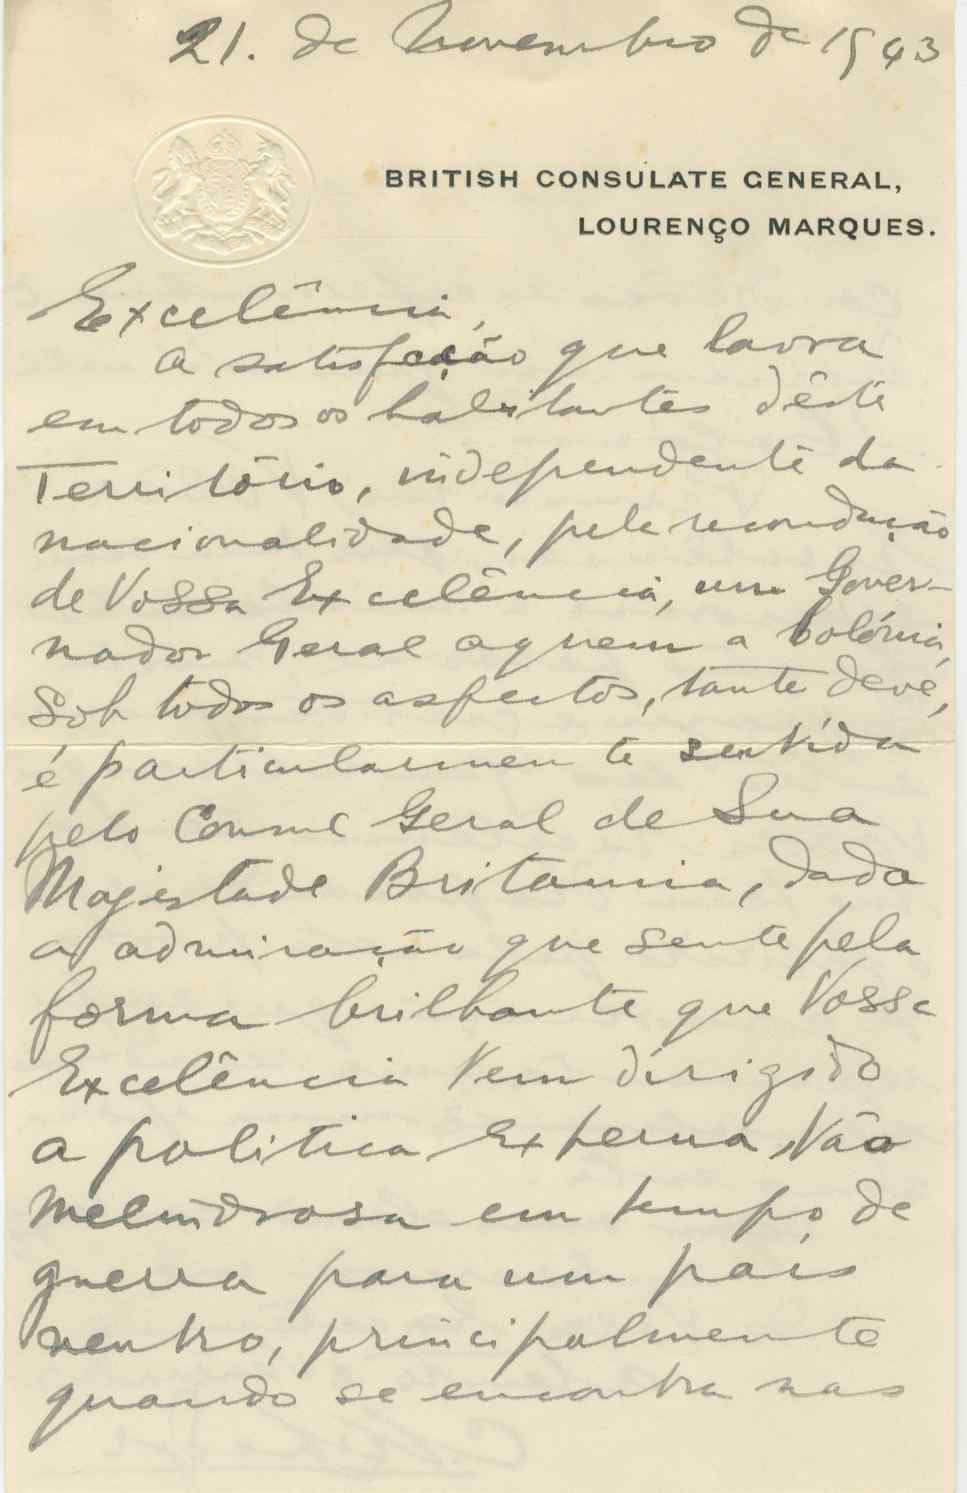 21. de Novembro de 1943
BRITISH CONSULATE GENERAL,
LOURENÇO MARQUES.
Excelência,
A satisfação que lavra
em todos os habitantes dêste
Território, independente da
nacionalidade, pela recondução
de Vossa Excelência, um Gover-
nador Geral aquem a Colónia,
sob todos os aspectos, tante deve,
é particularmente sentida
pelo Consul Geral de Sua
Magestade Britanica, dada
a admiração que sente pela
forma brilhante que Vossa
Excelência Vem dirigido
a politica Externa, tão
melindrosa em tempo de
guerra para um país
neutro, principalmente
quando se encontra nas